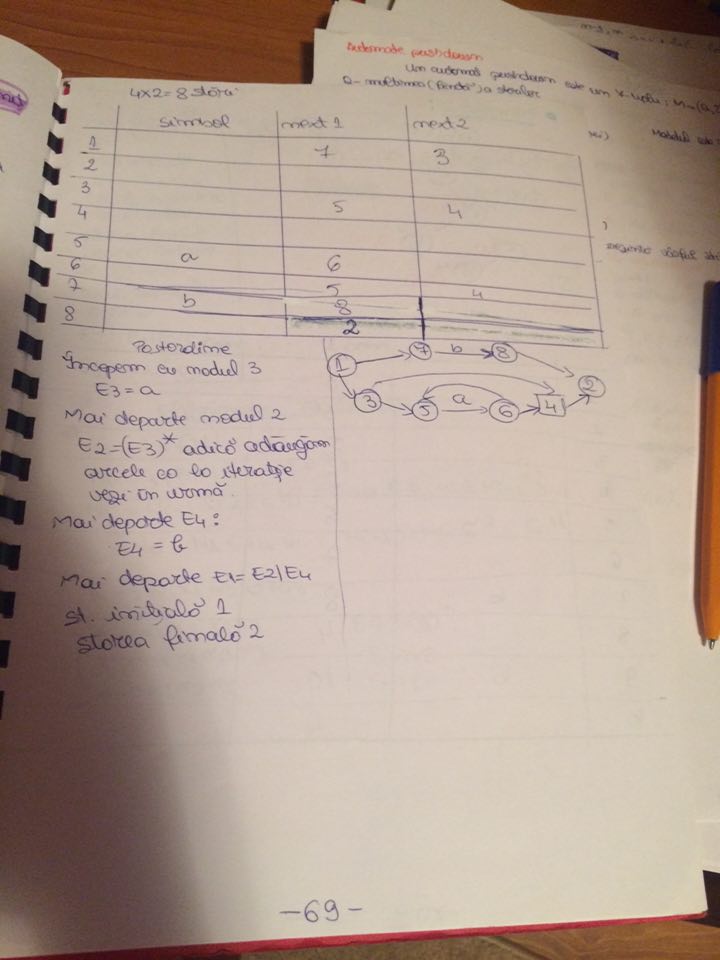 Automate pushdown
Un automat pushdown este un
Q - mulțimea
4x2=8 stări
simbol next 1 next 2
1
2 7 3
3
4 5 4
5
6 a 6
7 5 4
b 8
8 2
Postordine
Începem cu nodul 3
E3 = a
Mai departe nodul 2
E2=(E3)* adică adăugăm
arcele ca la iterație
vezi în urmă.
Mai departe E4:
E4 = b
Mai departe E1 = E2/E4
st. inițială 1
starea finală 2
1 7 b 8 2
3 5 a 6 4
-69-